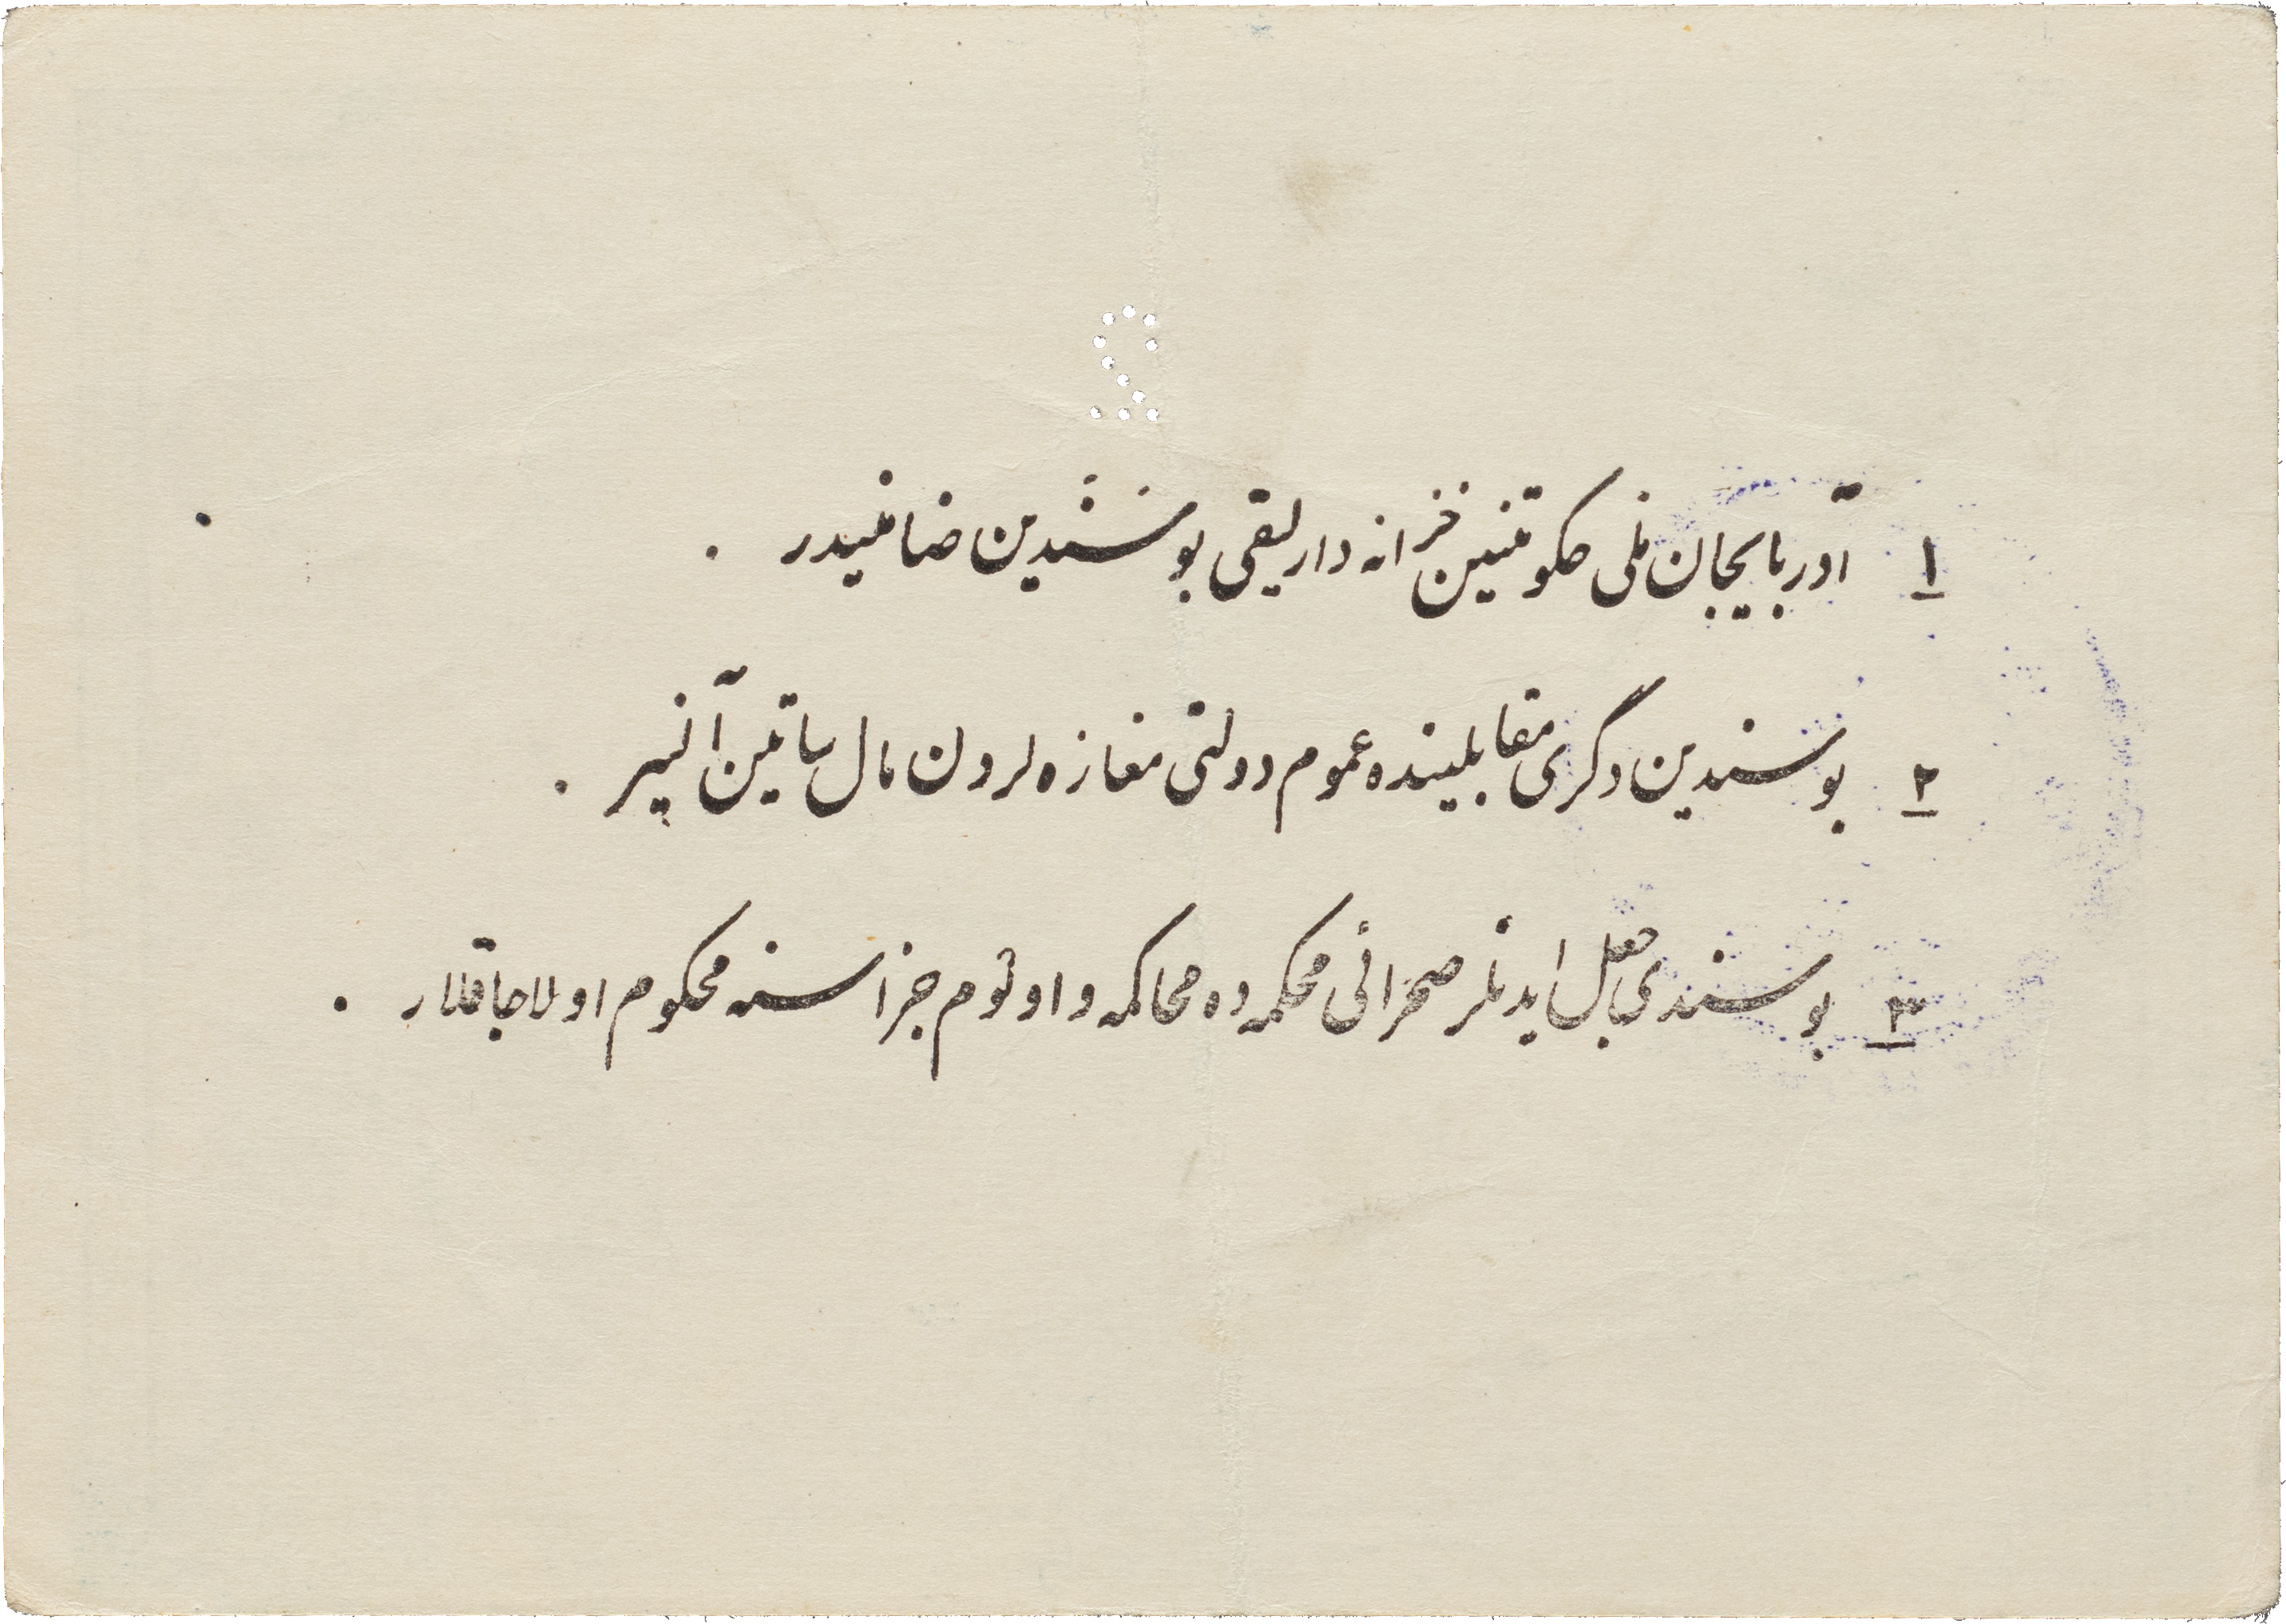 2
۱ آذربایجان ملی حکومتنین خزانه دارلیقی بو سندین ضامنیدر .
۲ بو سندین دگری مقابلینده عموم دولتی مغازه لردن مال ساتین آلنیر .
۳ بو سندی جعل ایدنلر صحرائی محکمه ده محاکمه و اولوم جزاسنه محکوم اولاجاقلار .